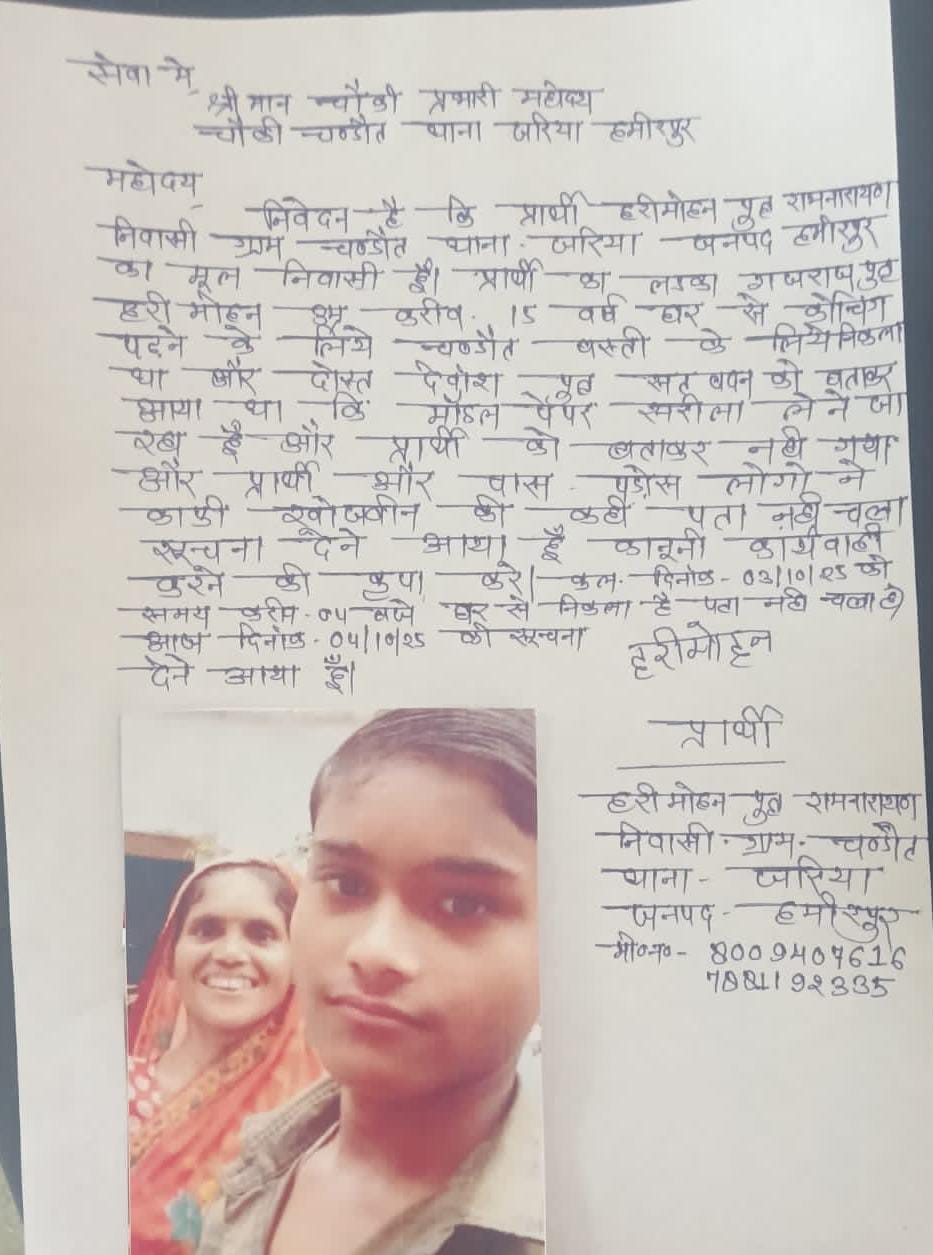 सेवा मे,
श्री मान चौकी प्रभारी महोदय
चौकी चण्डौत थाना जरिया हमीरपुर
महोदय,
निवेदन है कि प्रार्थी हरीमोहन पुत्र रामनारायण
निवासी ग्राम चण्डौत थाना. जरिया जनपद हमीरपुर
का मूल निवासी है। प्रार्थी का लडका गजराज पुत्र
हरी मोहन उम्र करीव. 15 वर्ष घर से कोचिंग
पढने के लिये चण्डौत वस्ती के लिये निकला
था और दोस्त देवांश पुत्र सत वचन को बताकर
आया था कि मॉडल पेपर सरीला लेने जा
रहा है और प्रार्थी को बताकर नही गया
और प्रार्थी और पास पडोस लोगो ने
काफी खोजवीन की कही पता नही चला
सूचना देने आया हूँ कानूनी कार्यवाही
करने की कृपा करे। कल. दिनांक - 03/10/25 को
समय करीब. 04 बजे घर से निकला है पता नही चला है
आज दिनांक. 04/10/25 को सूचना
देने आया हूँ।
हरीमोहन
प्रार्थी
हरी मोहन पुत्र रामनारायण
निवासी. ग्राम. चण्डौत
थाना - जरिया
जनपद - हमीरपुर
मो०न० - 8009407616
7881192335